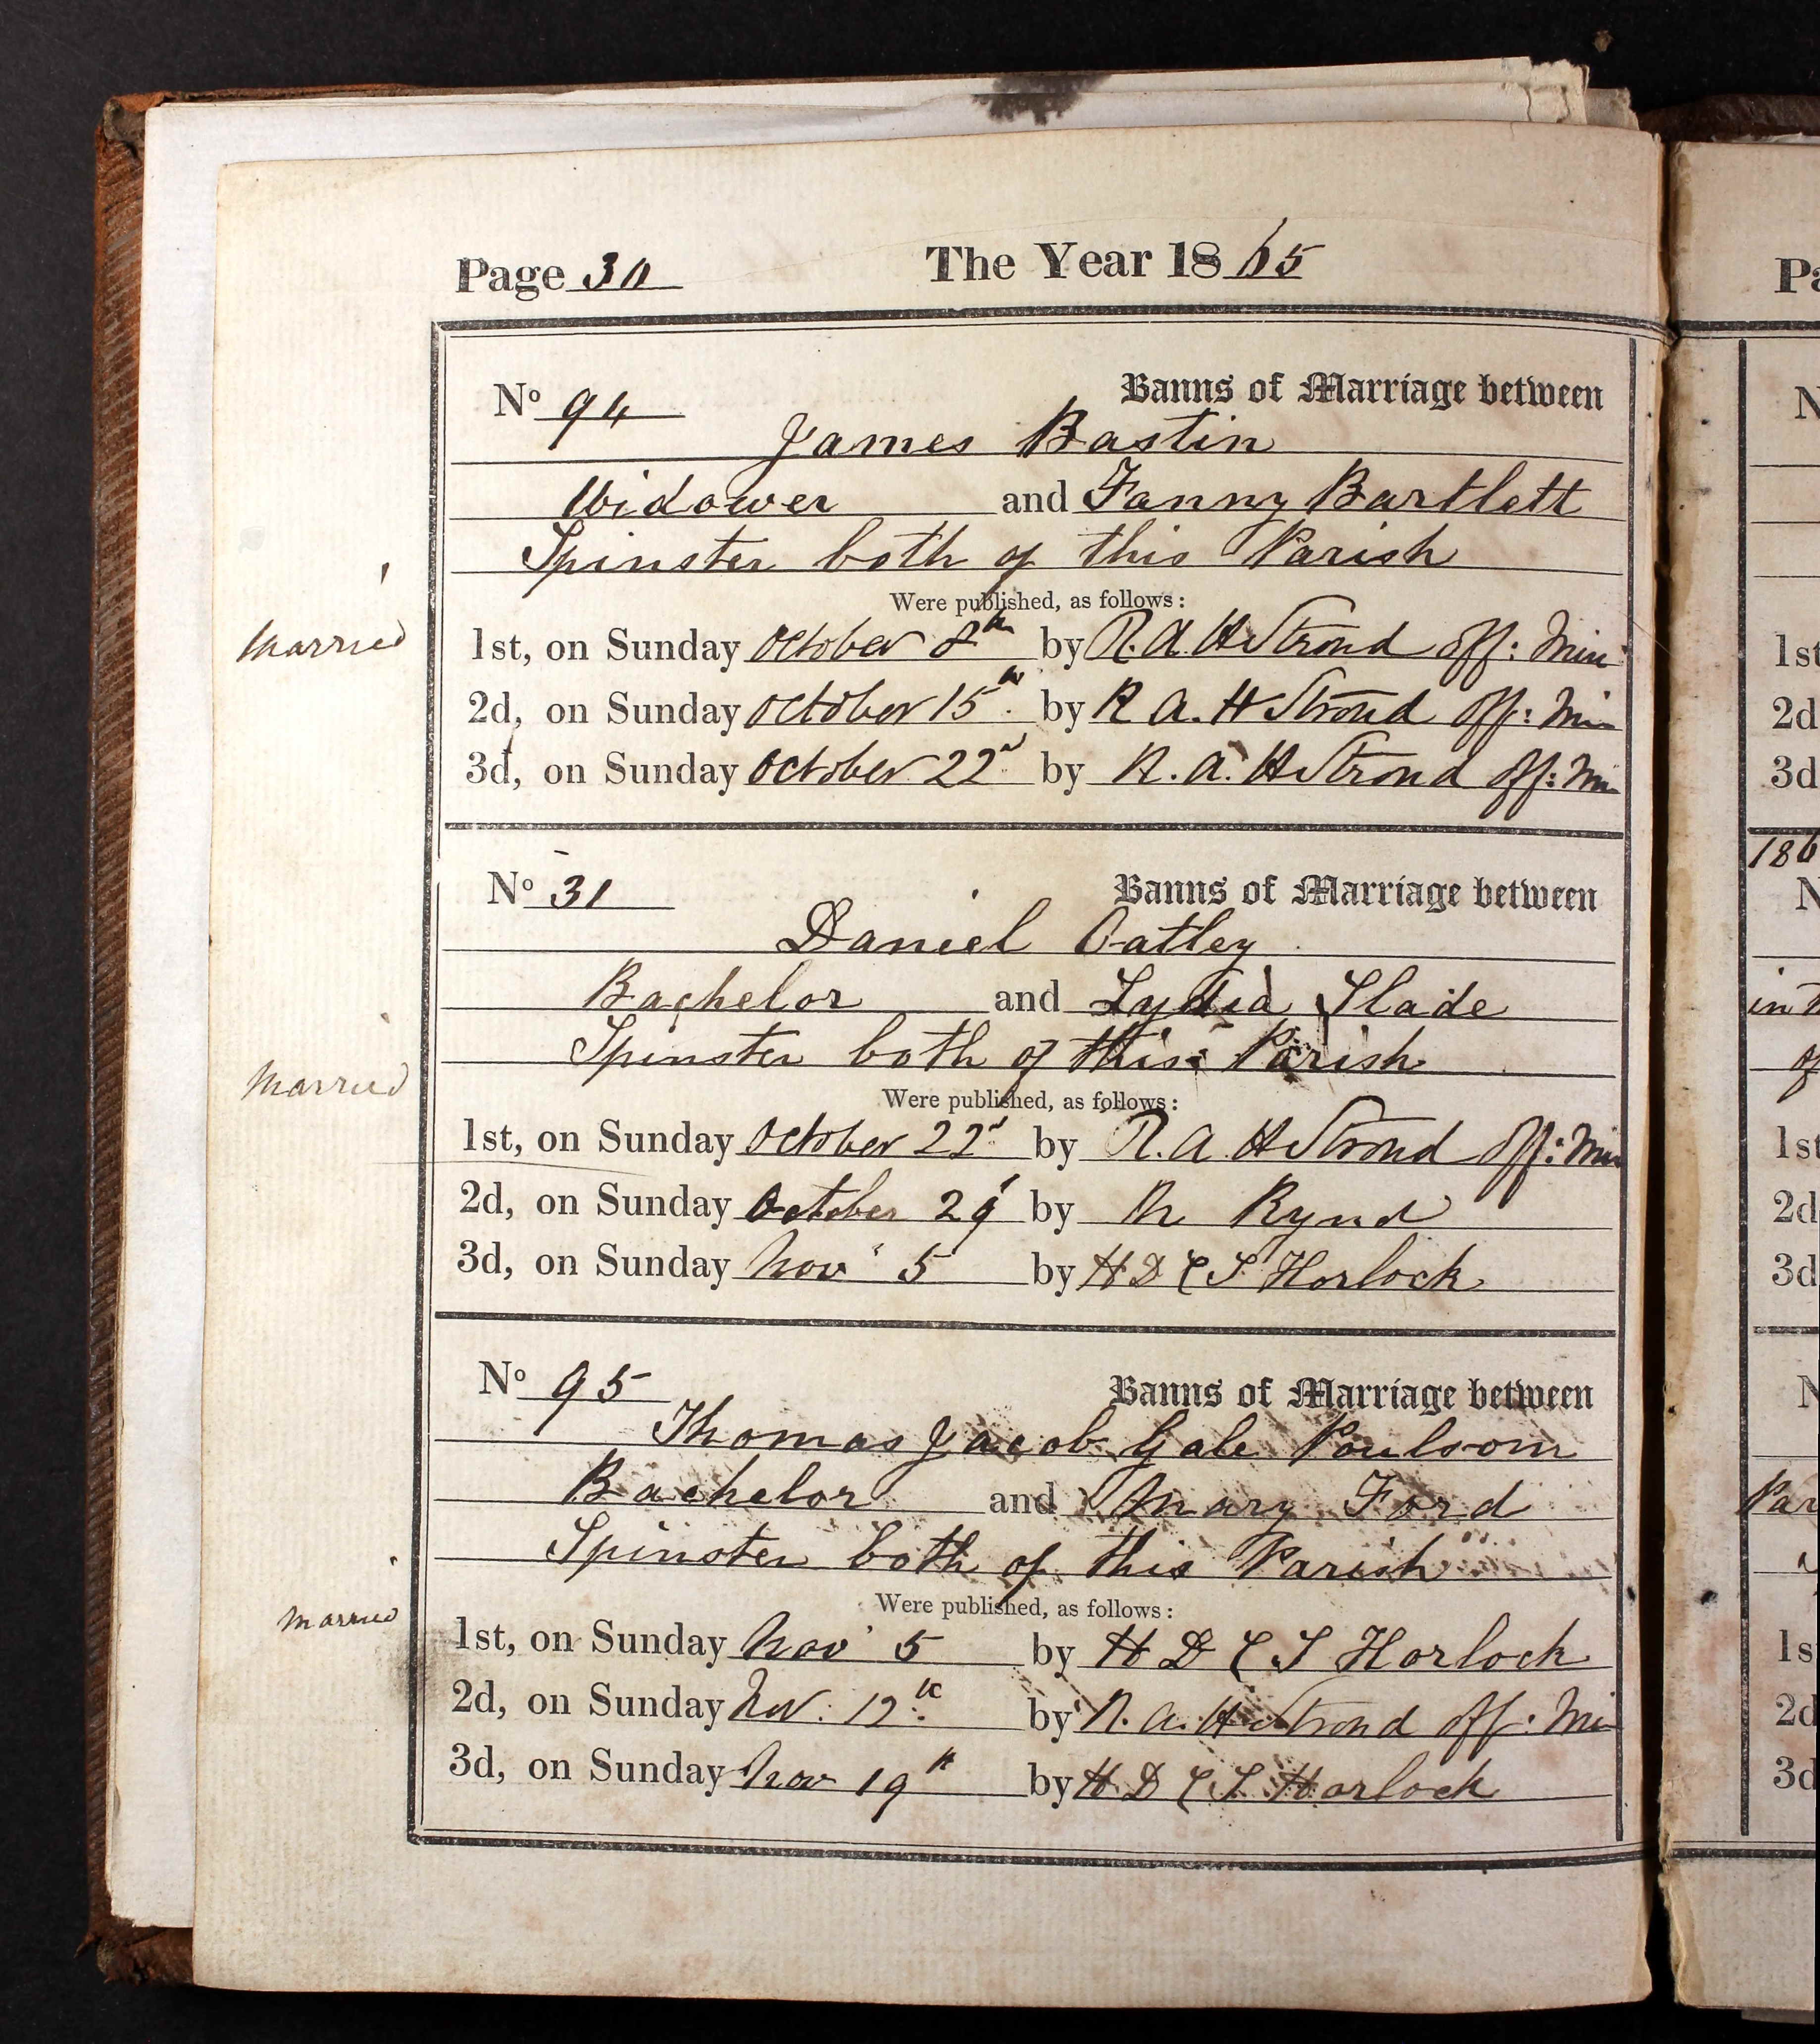 Page 30 The Year 1865
No 94 Banns of Marriage between
James Bastin
Widower and Fanny Bartlett
Spinster both of this Parish
Were published, as follows:
Married
1st, on Sunday October 8th by R. A. H Stroud off: Min
2d, on Sunday October 15th by R A. H Stroud off: Min
3d, on Sunday October 22d by R. A. H Stroud off: Min
No 31 Banns of Marriage between
Daniel Oatley
Bachelor and Lydia Slade
Spinster both of this Parish
Were published, as follows:
Married
1st, on Sunday October 22d by R. A H Stroud off: Min
2d, on Sunday October 29 by R Rynd
3d, on Sunday Nov 5 by H D C S Horlock
No 95 Banns of Marriage between
Thomas Jacob Gale Poulsom
Bachelor and Mary Ford
Spinster both of this Parish
Were published, as follows:
Married
1st, on Sunday Nov 5 by H D C S Horlock
2d, on Sunday Nov. 12th by R. A. H Stroud off: Min
3d, on Sunday Nov 19th by H D C S Horlock
Pa
N
1st
2d
3d
186
N
in
of
1st
2d
3d
N
Par
1s
2d
3d